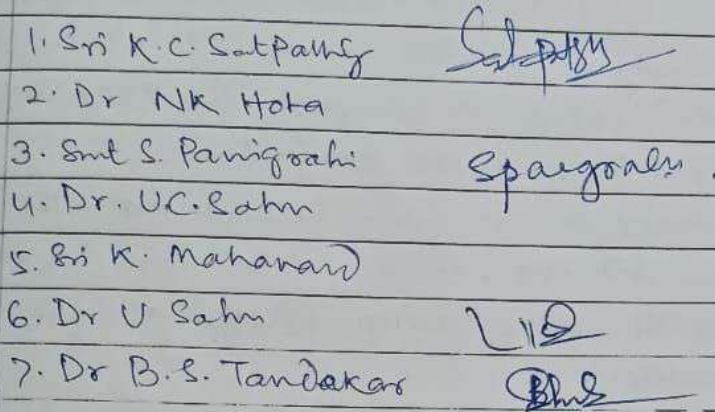 1. Sri K.C. Satpathy
2. Dr NK Hota
3. Smt S. Panigrahi Spanigrahi
4. Dr. U.C. Sahu
5. Sri K. Mahanand
6. Dr U Sahu
7. Dr B.S. Tandakar